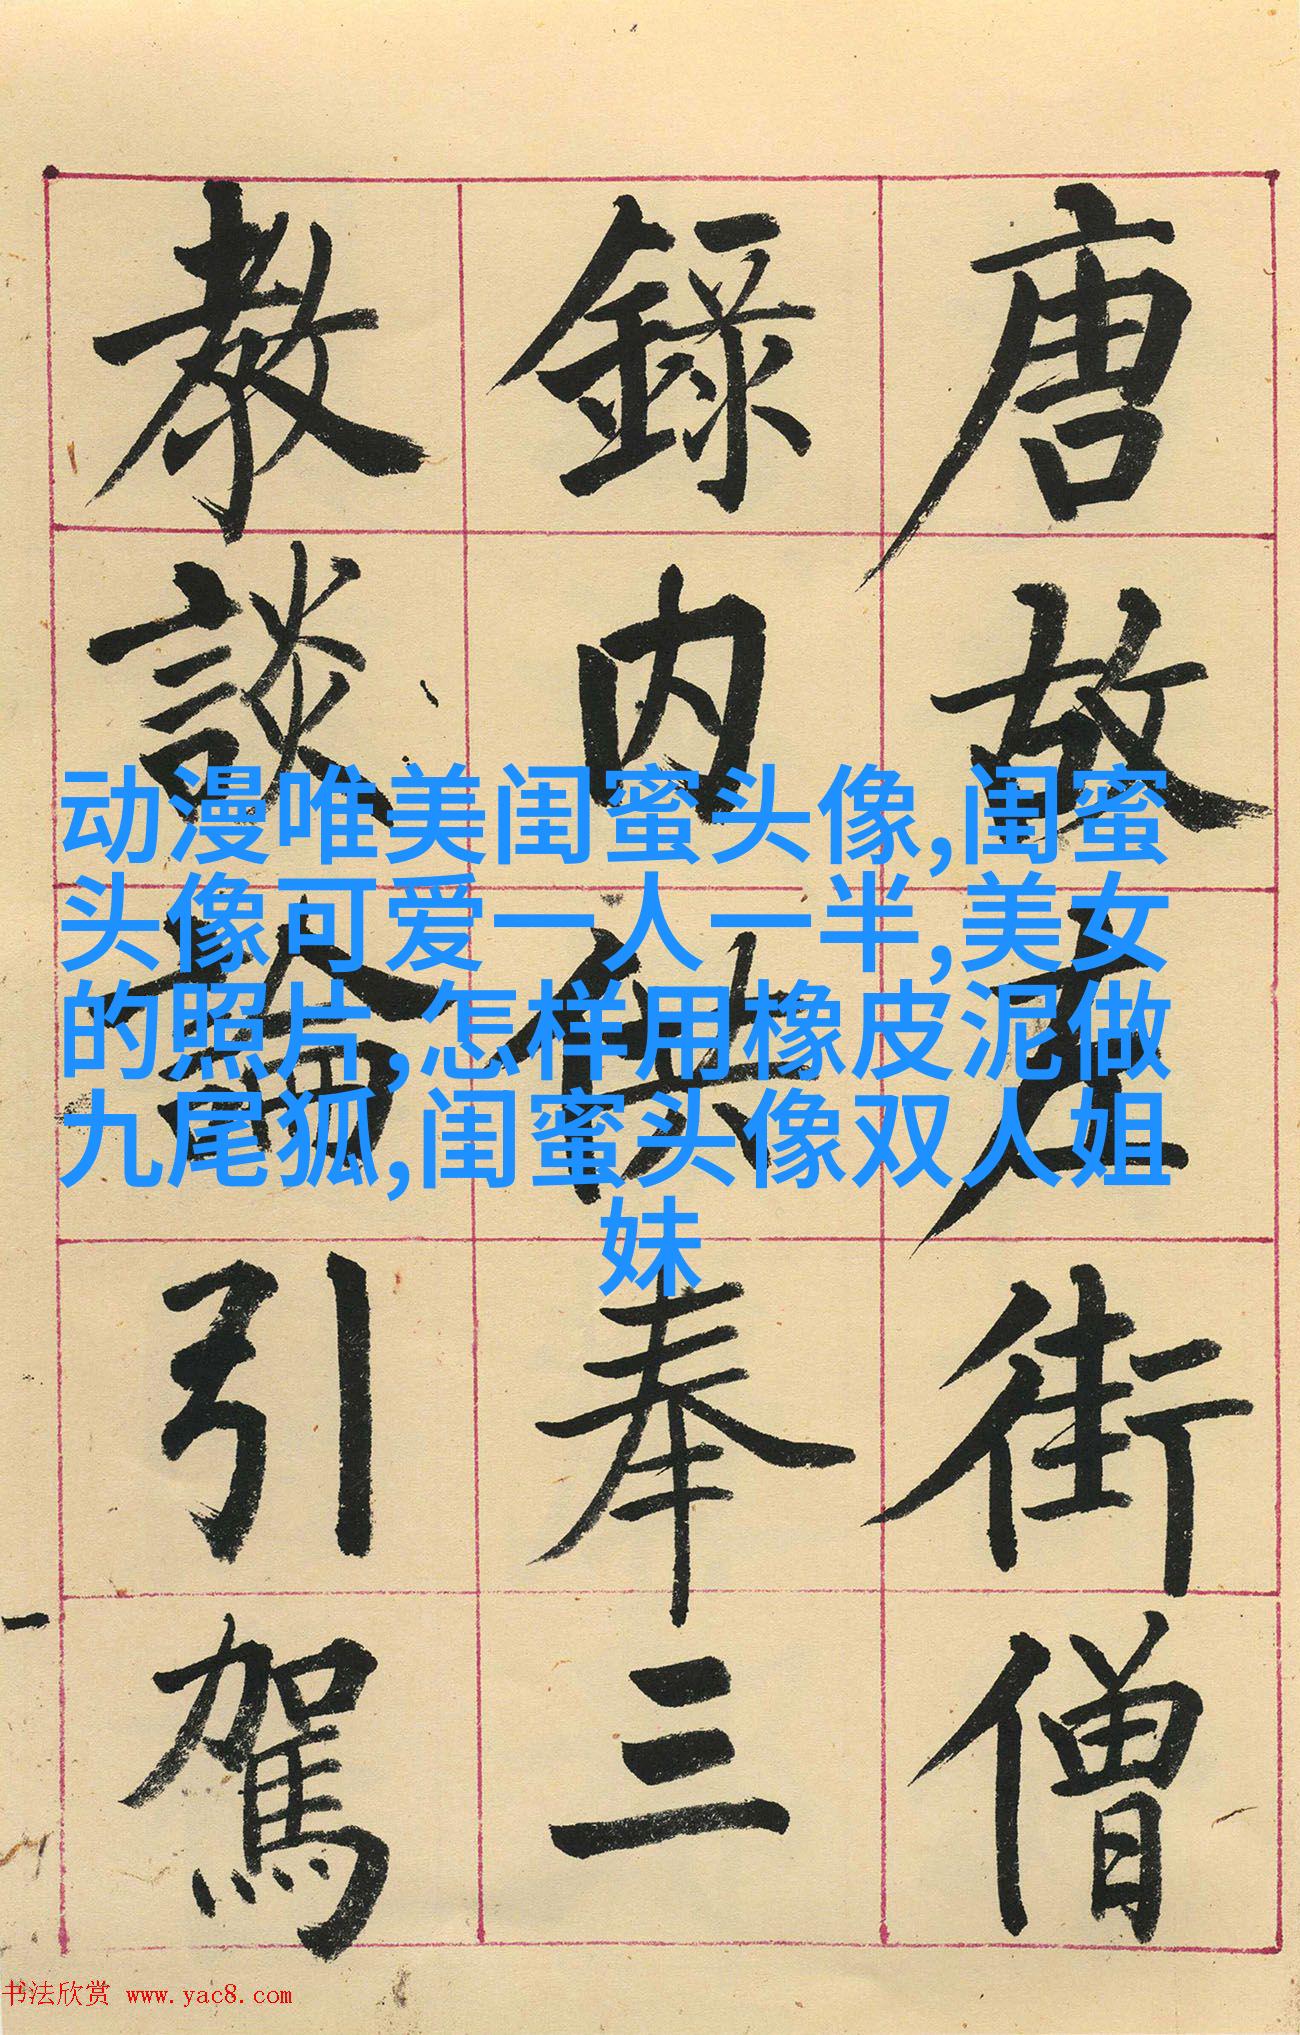 唐故左街僧
錄内供奉三
教談論引駕
动漫唯美闺蜜头像,闺蜜
头像可爱一人一半,美女
的照片,怎样用橡皮泥做
九尾狐,闺蜜头像双人姐
妹
书法欣赏 www.yac8.com